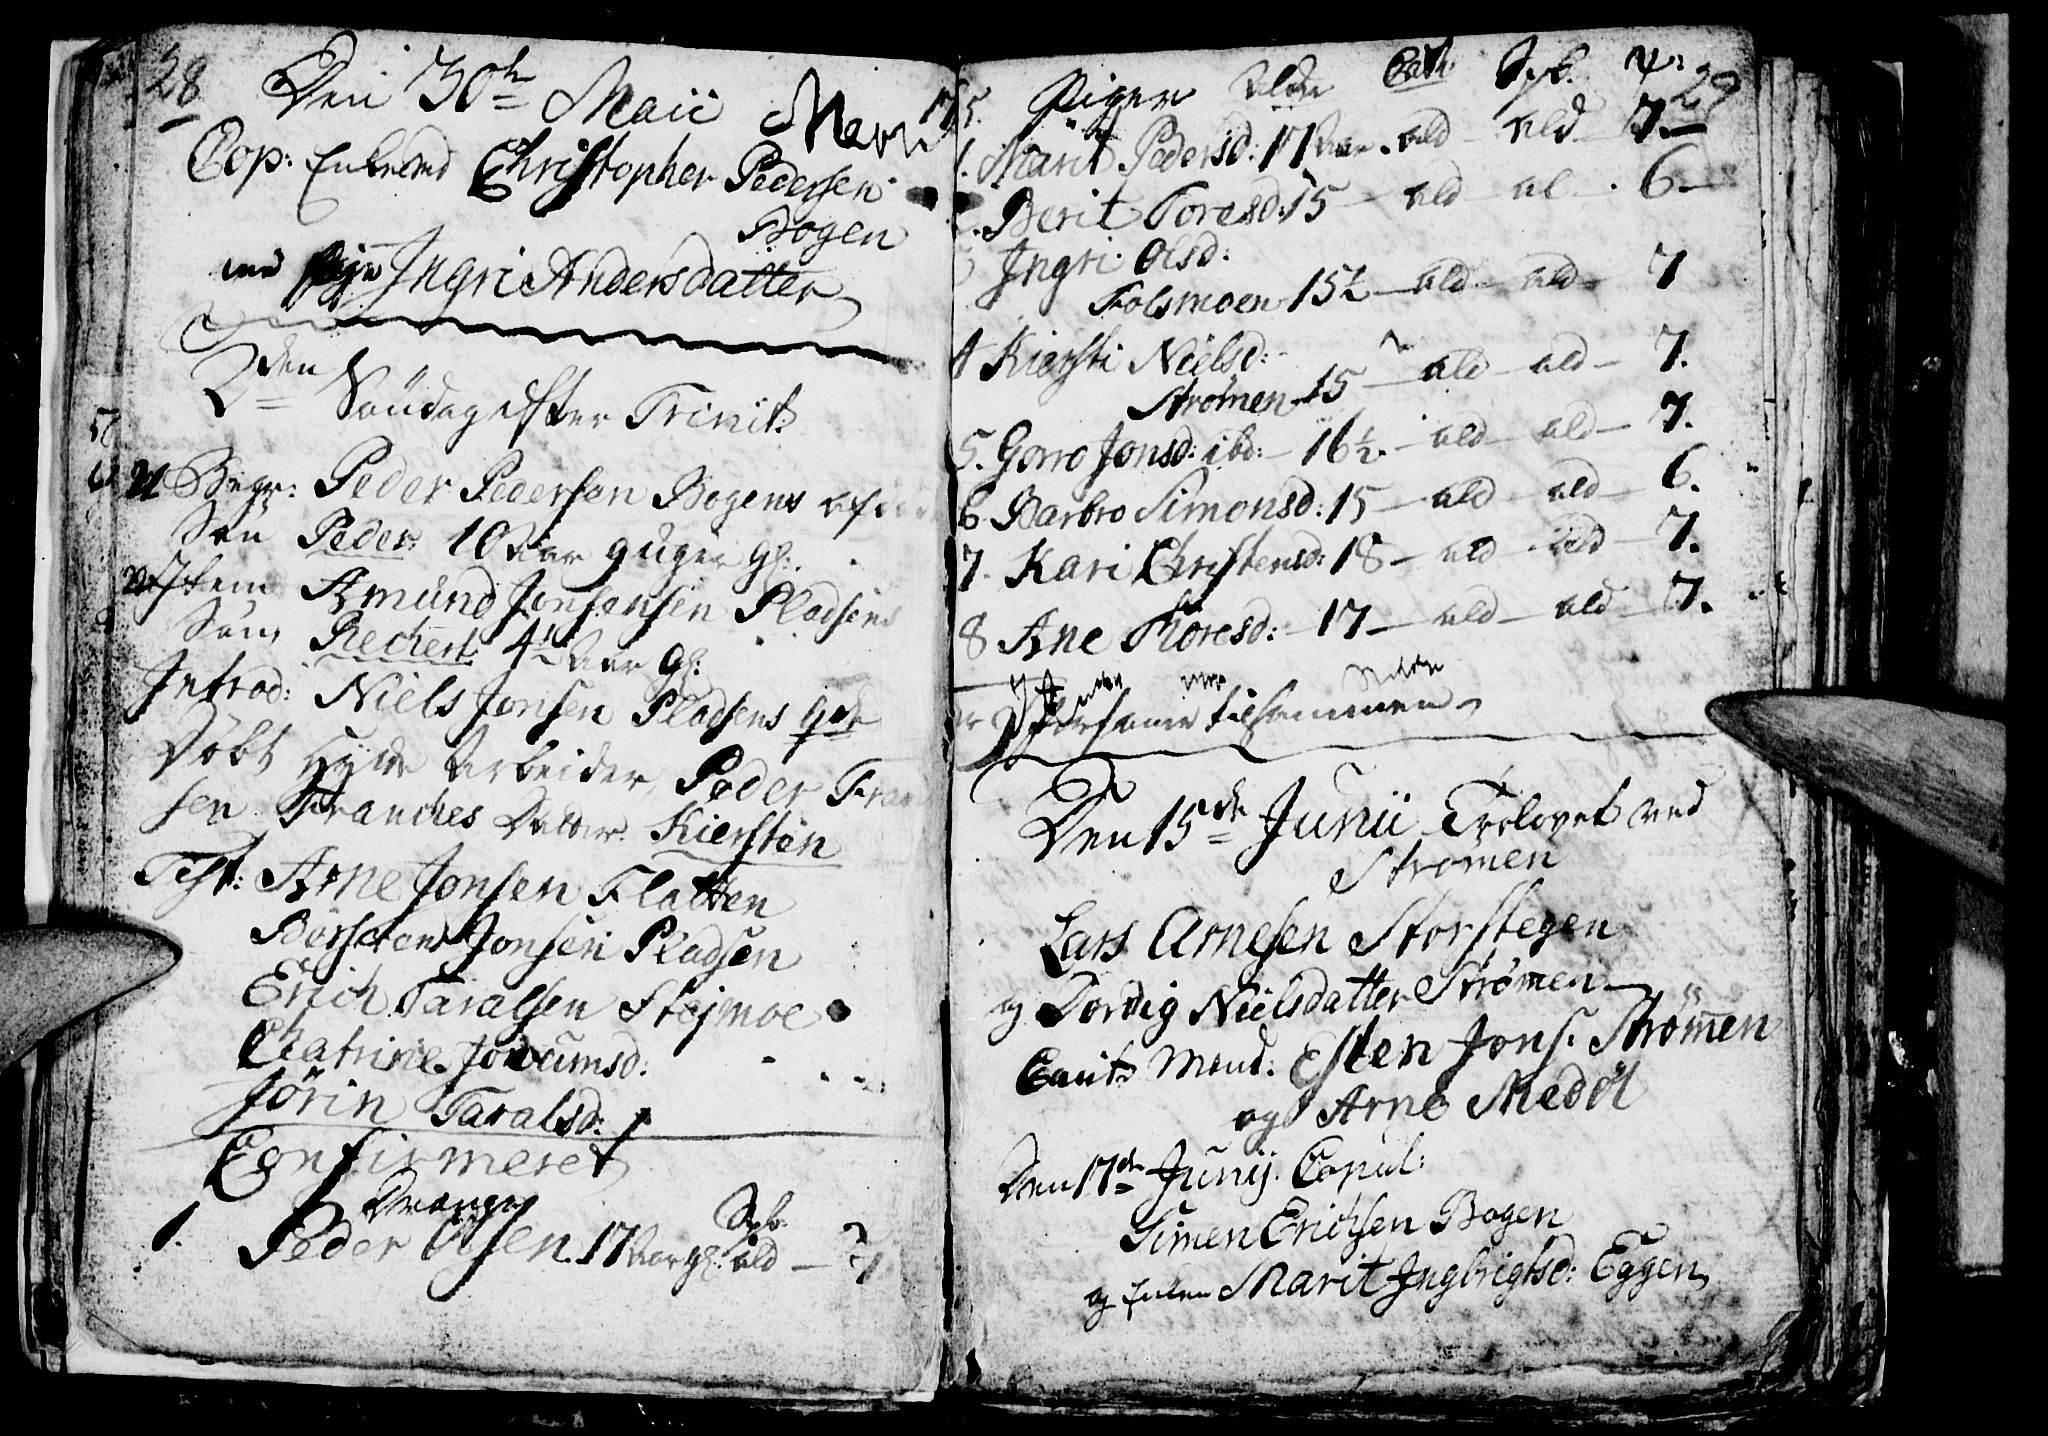 28
Den 30te Maii
Cop: Enkemd Christopher Pedersen
Bogen
med Pige Ingri Andersdatter
2den Söndag efter Trinit:
Begr: Peder Pedersøn Bogens
Søn Peder 10 Aar 9 uger gl:
Item Amund Jonsønsen Pladsens
Søn Rechert 4 1/2 Aar gl:
Introd: Niels Jonsen Pladsens qde
Döbt Hytte Arbeider Peder Fran
sen Franches Datter Kierstin
Test: Arne Jonsen Flatten
Bersvend Jonsen Pladsen
Erich Taralsen Stejmoe
Chatrine Jocumsd:
Jörin Taralsd:
Confirmeret
Drenge
1. Peder Olsen 17 Aar gl: ald — 7
29
Piger Alder Cat:
1. Marit Pedersd: 17 Aar. ald — ald — 7.
2. Berit Toresd: 15 — ald — al — 6 —
Ingri Olsd:
Folsmoen 15 1/2 — ald — ald — 7
4 Kiersti Nielsd:
Strømen 15 — ald — ald — 7.
5. Goro Jonsd: ibd: — 16 1/2. — ald — ald — 7.
6 Barbro Simonsd: 15 — ald — ald — 6.
7. Kari Christensd: 18 — ald — ald — 7.
8 Ane Thoresd: — 17 — ald — ald — 7.
tilsammen
Den 15de Junii Trolovet ved
Strömen
Lars Arnesen Storstegen
og Dordig Nielsdatter Strømen
Cauts Mænd: Esten Jons: Strömen
og Arne Medöl
Den 17de Junij. Copul:
Simen Erichsen Bogen
og Enken Marit Ingbrigtsd: Eggen